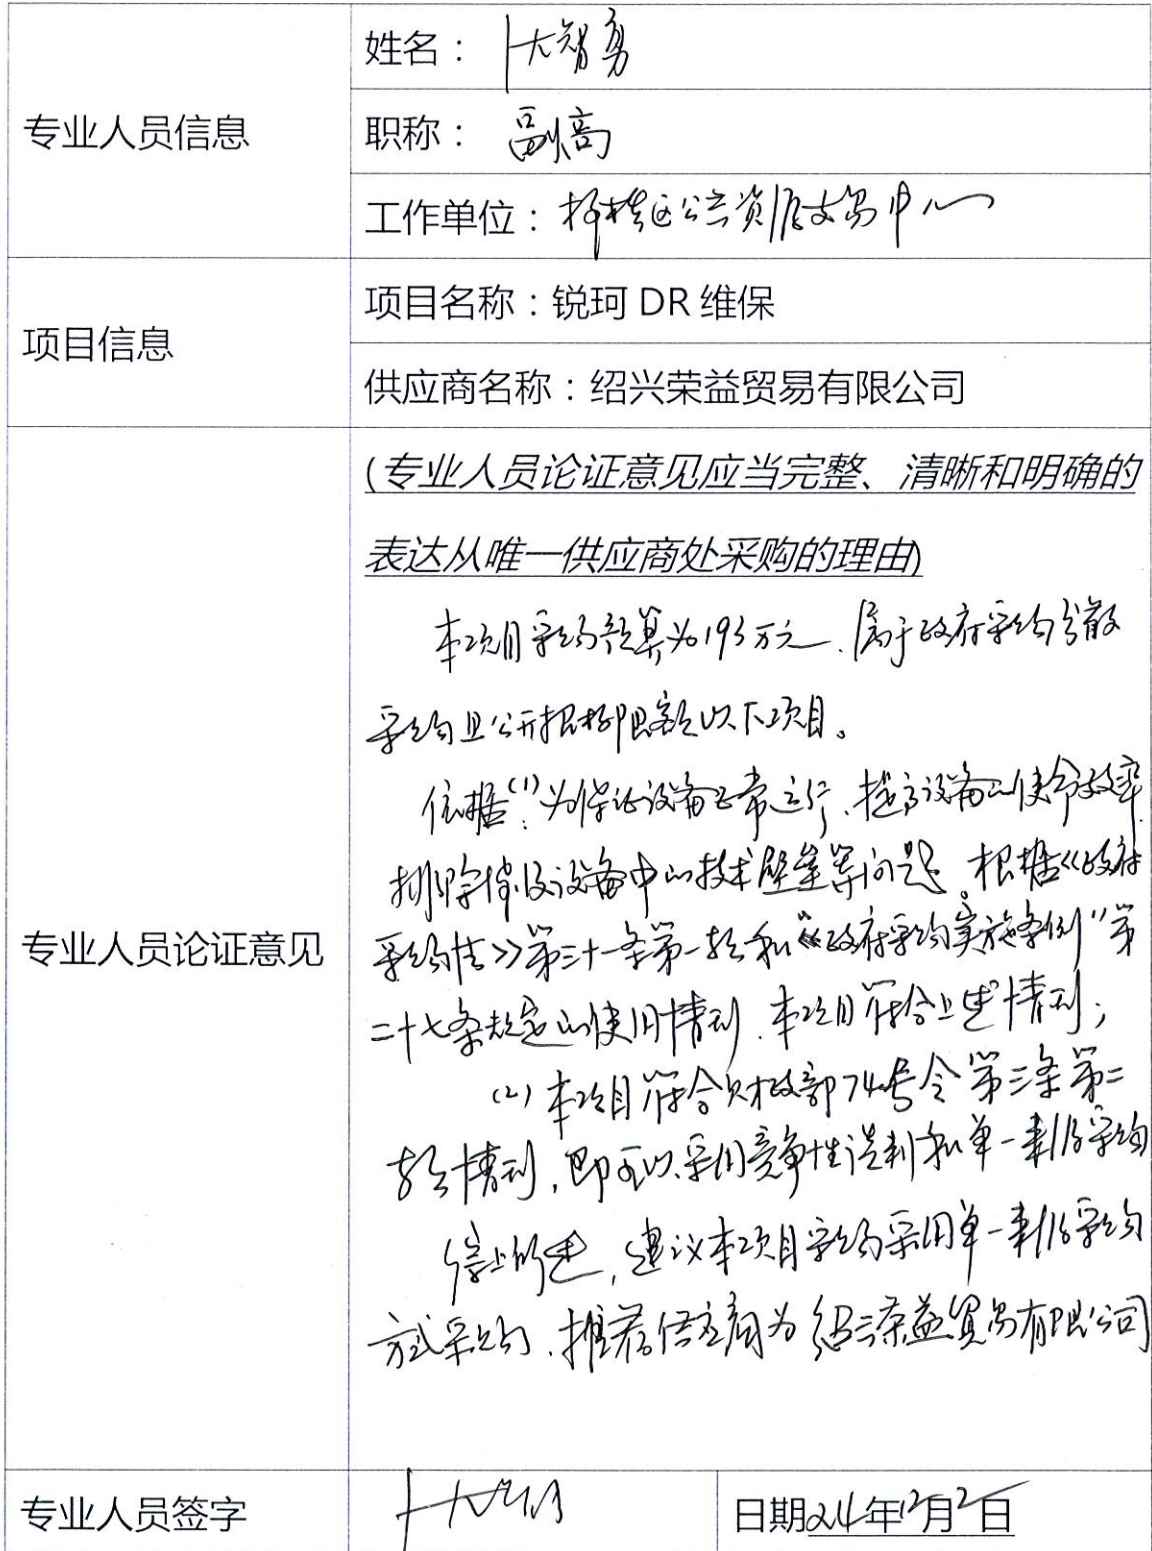 专业人员信息
姓名：智勇
职称：副高
工作单位：柯桥区公共资源交易中心
项目信息
项目名称：锐珂 DR 维保
供应商名称：绍兴荣益贸易有限公司
专业人员论证意见
(专业人员论证意见应当完整、清晰和明确的
表达从唯一供应商处采购的理由)
本项目采购预算为193万元、属于政府采购分散
采购且公开招标限额以下项目。
依据：(1)为保证设备正常运行、提高设备的使命效率
排除维设备中的技术壁垒等问题。根据《政府
采购法》第三十一条第一款和“《政府采购实施条例”第
二十七条规定的使用情形、本项目符合上述情形；
(2)本项目符合财政部74号令第三条第二
款情形，即可以采用竞争性谈判和单一来源采购
综上所述，建议本项目采购采用单一来源采购
方式采购、推荐供应商为绍兴荣益贸易有限公司
专业人员签字
日期24年12月2日